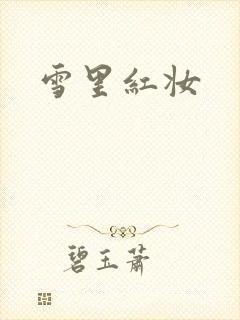 雪里紅妆
碧玉萧